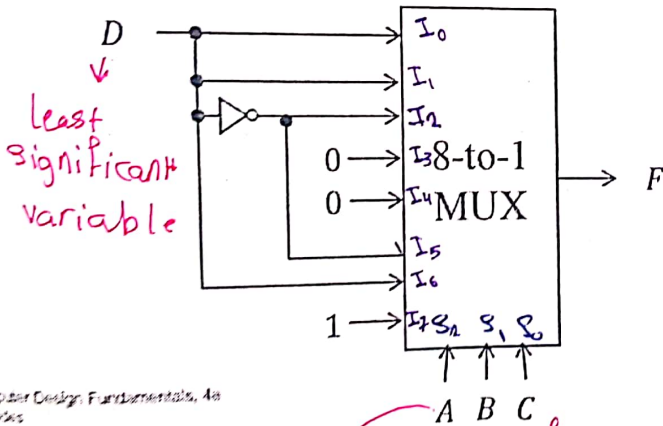 D
least
significant
variable
I₀
I₁
I₂
0 I₃ 8-to-1
0 I₄ MUX
I₅
I₆
1 I₇ S₂ S₁ S₀
F
A B C
Design Fundamentals, 4e